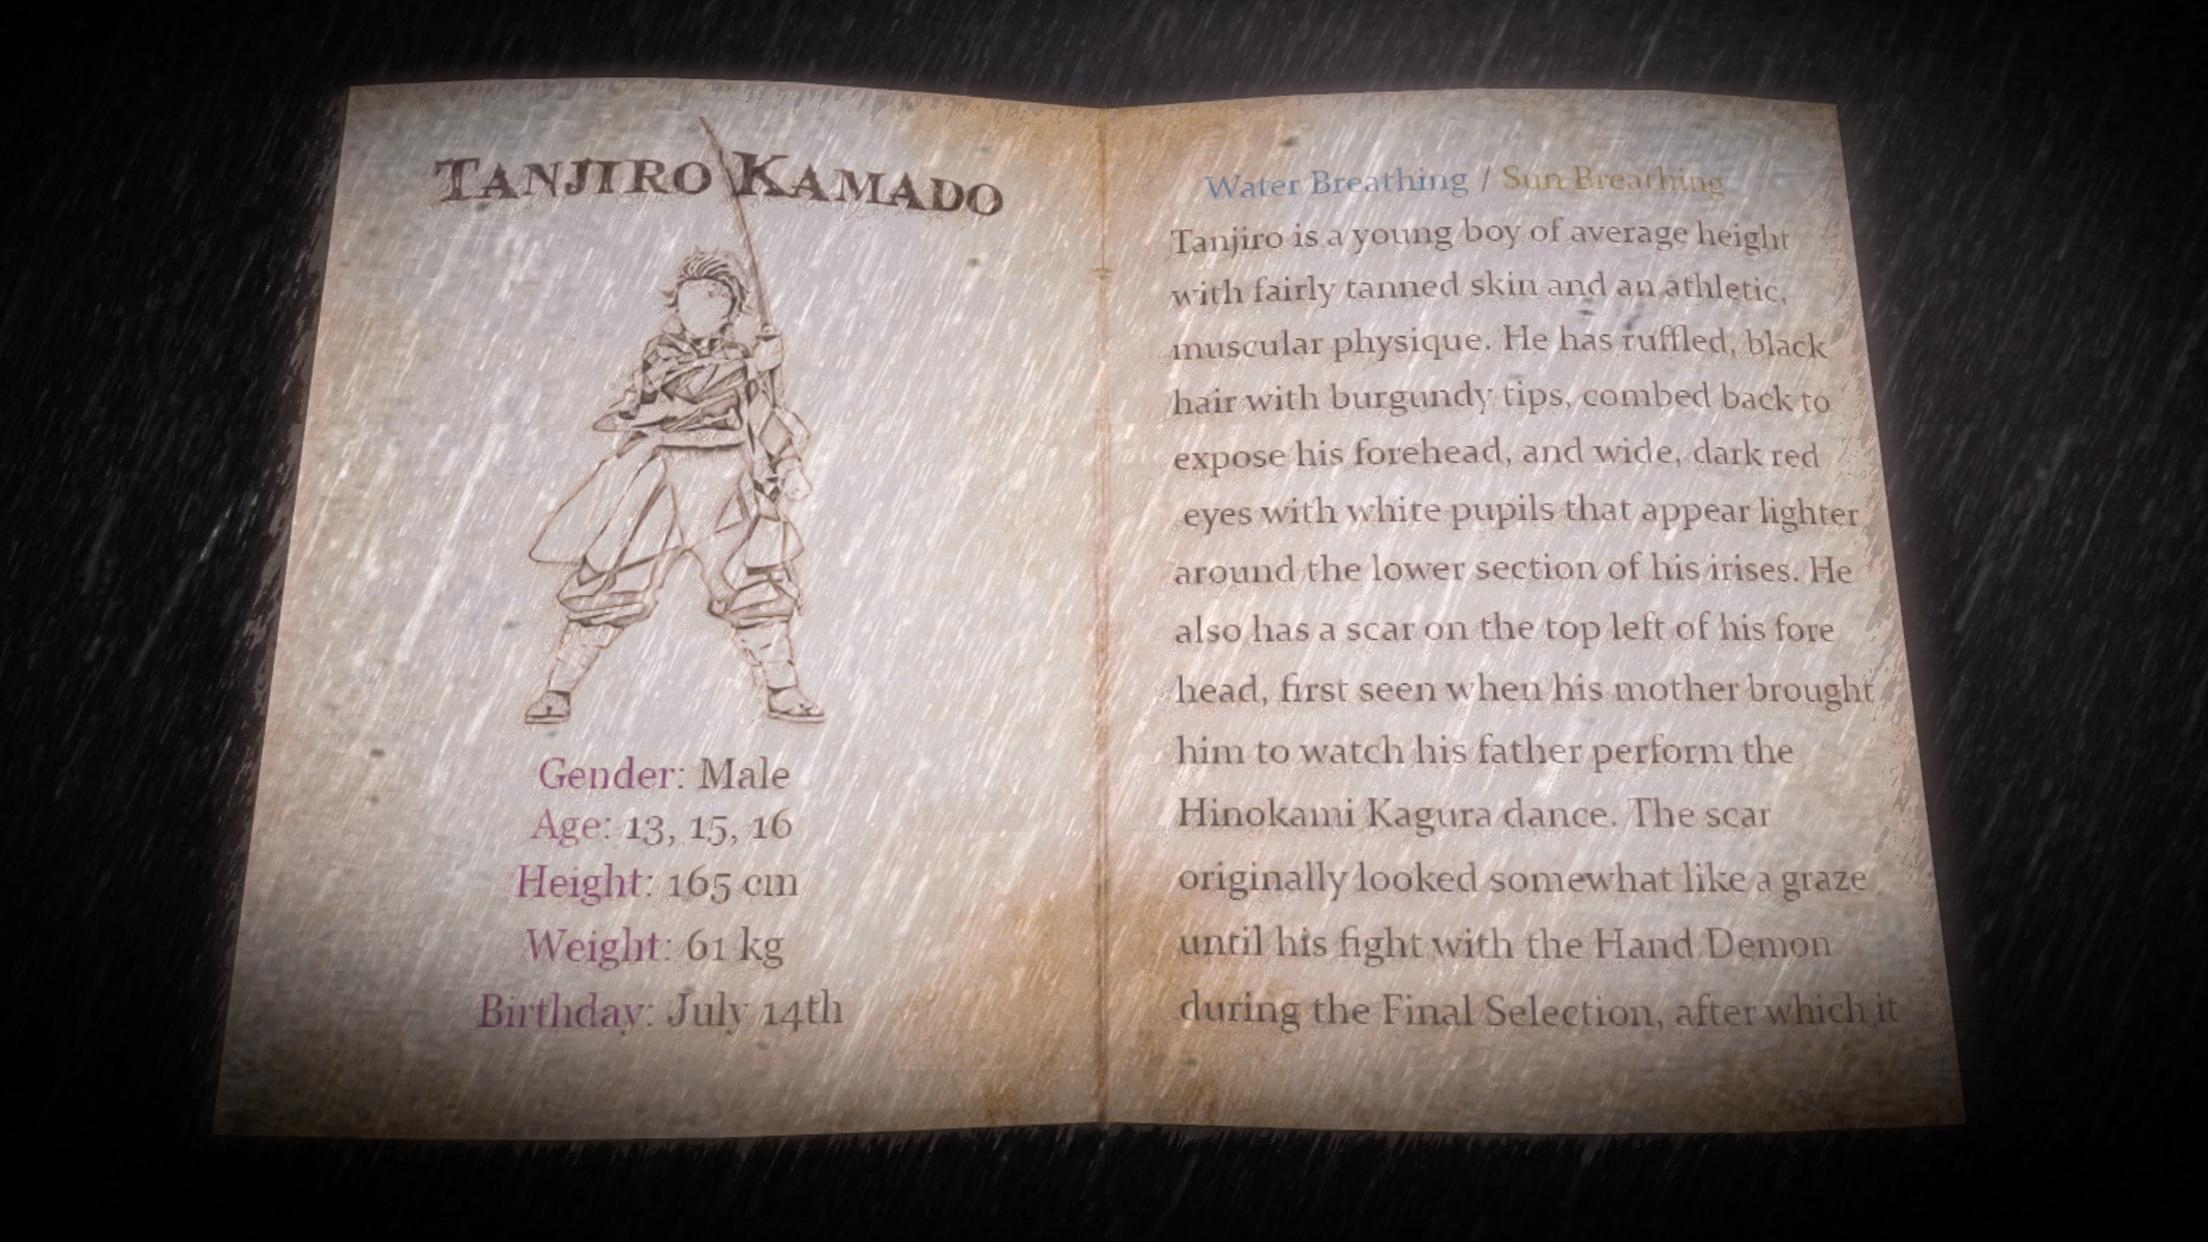 TANJIRO KAMADO
Gender: Male
Age: 13, 15, 16
Height: 165 cm
Weight: 61 kg
Birthday: July 14th
Water Breathing / Sun Breathing
Tanjiro is a young boy of average height
with fairly tanned skin and an athletic,
muscular physique. He has ruffled, black
hair with burgundy tips, combed back to
expose his forehead, and wide, dark red
eyes with white pupils that appear lighter
around the lower section of his irises. He
also has a scar on the top left of his fore
head, first seen when his mother brought
him to watch his father perform the
Hinokami Kagura dance. The scar
originally looked somewhat like a graze
until his fight with the Hand Demon
during the Final Selection, after which it